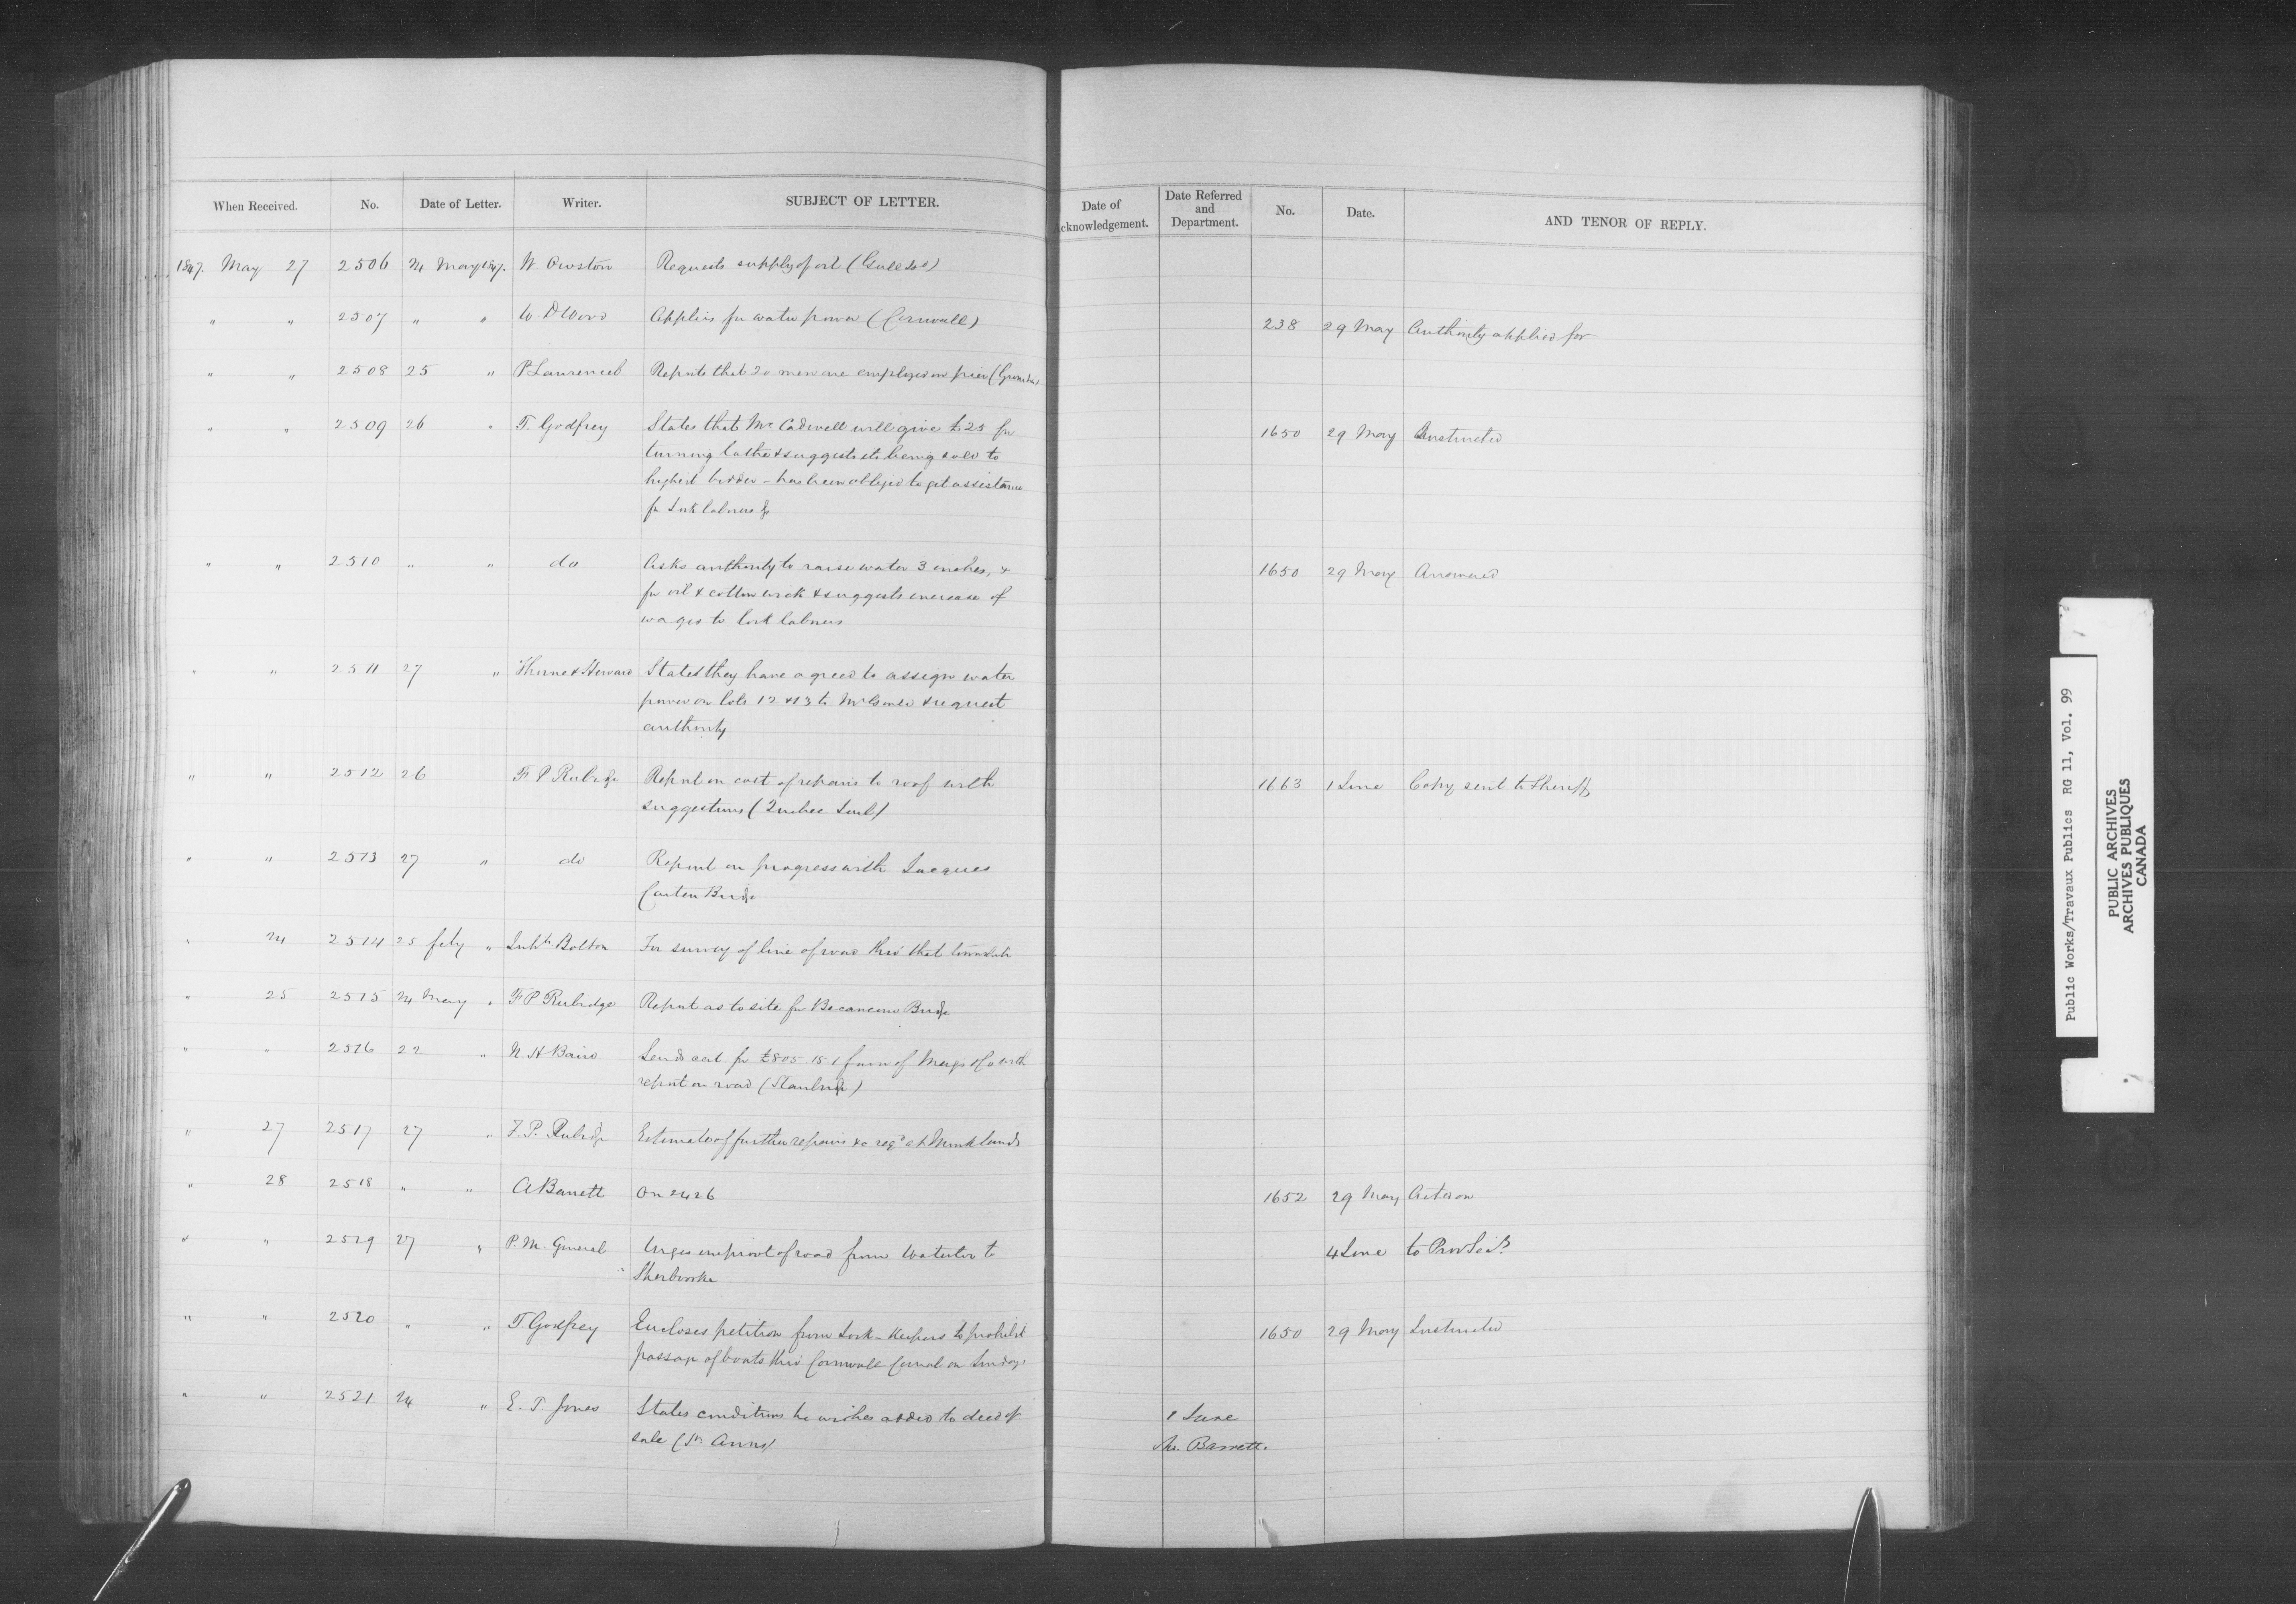 When Received. No. Date of Letter. Writer. SUBJECT OF LETTER.
Date of Acknowledgement. Date Referred and Department. No. Date. AND TENOR OF REPLY.
1847. May 27 2506 24 May 1847. W Owston Requests supply of oil (Gull Isld)
" " 2507 " " W. D Wood Applies for water power (Cornwall) 238 29 May Authority applied for
" " 2508 25 " P Laurencel Reports that 20 men are employed on pier
" " 2509 26 " T. Godfrey States that Mr Cadwell will give £25 for 1650 29 May Instructed
turning lathe & suggests its being sold to
highest bidder - has been obliged to get assistance
for Lock labourers &c
" " 2510 " " do Asks authority to raise water 3 inches, & 1650 29 May Answered
for oil & cotton wick & suggests increase of
wages to lock labrers
" " 2511 27 " States they have agreed to assign water
power on lots 12 & 13 to & request
authority
" " 2512 26 F P Rubidge Report on cost of repairs to roof with 1663 1 June Copy sent to Sheriff
suggestions (Quebec Gaol)
" " 2513 27 " do Report on progress with Jacques
Cartier Bridge
" 24 2514 25 feby " Inhts Bolton For survey of line of road thro' that township
" 25 2515 24 May " F P Rubidge Report as to site for Becancour Bridge
" " 2516 22 " N. H Baird Sends cert for £805 15 1 favor of & Co with
report on road (Stanbridge)
" 27 2517 27 " F. P. Rubidge Estimate of further repairs &c reqd at Monklands
" 28 2518 " " A Barrett On 2426 1652 29 May Acted on
" " 2519 27 " P. M. General Urges improvt of road from Waterloo to 4 June to Prov Secy
Sherbrooke
" " 2520 " " T. Godfrey Encloses petition from Lock-Keepers to prohibit 1650 29 May Instructed
passage of boats thro' Cornwall Canal on Sundays
" " 2521 24 " E. T. Jones States conditions he wishes added to deed of 1 June
sale (St. Anns) Mr. Barrett.
Public Works/Travaux Publics RG 11, Vol. 99
PUBLIC ARCHIVES
ARCHIVES PUBLIQUES
CANADA